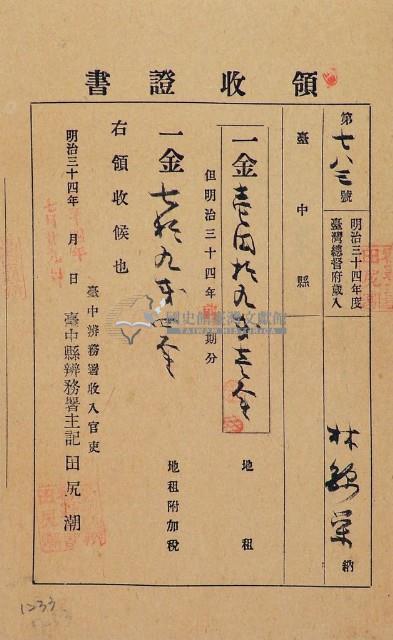 領收證書
第七八三號
明治三十四年度
臺灣總督府歲入
林 納
臺中縣
一金壹圓拾九錢七厘 地租
但明治三十四年 期分
一金七拾九錢四厘 地租附加稅
右領收候也
臺中辨務署收入官吏
明治三十四年 月 日
臺中縣辨務署主記 田尻潮
國史館臺灣文獻館
TAIWAN HISTORICA
1233